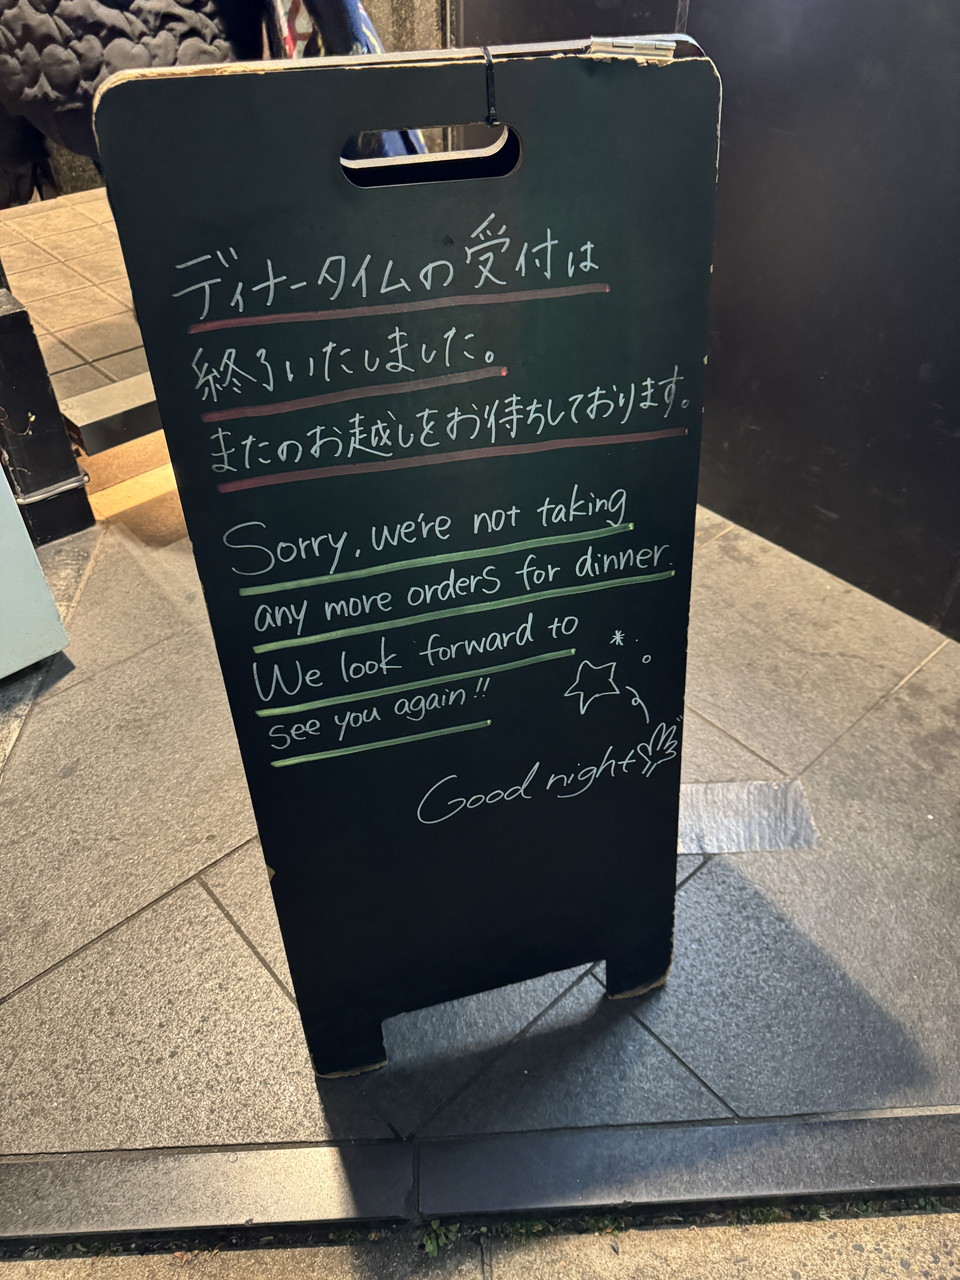 ディナータイムの受付は
終了いたしました。
またのお越しをお待ちしております。
Sorry, we're not taking
any more orders for dinner.
We look forward to
see you again!!
Good night